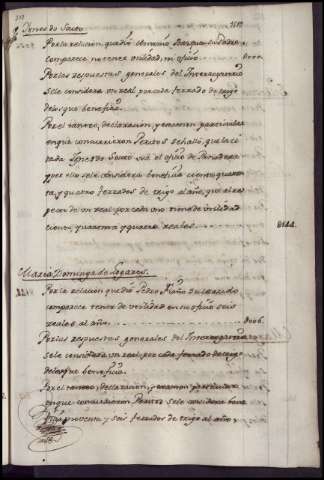 Ygnes do Souto
Por la relacion que dio
comparece no tener utilidad en su oficio 0000.
Por las respuestas generales del Interrogatorio
se le considera un real por cada ferrado de trigo
de los que beneficia.
Por el tanteo, declaracion, y examen particular
en que concurrieron Peritos se halló, que la ci
tada Ygnes do Souto usa el oficio de Panadera
y por ello se le considera beneficia ciento quaren
ta y quatro ferrados de trigo al año, que al res
pecto de un real por cada uno tiene de utilidad
ciento, quarenta y quatro reales 0144.
Maria Dominga de Logares.
Por la relacion que dio Pedro su marido
comparece tener de utilidad en su oficio seis
reales al año 0006.
Por las respuestas generales del Interrogatorio
se le considera un real por cada ferrado de trigo
de los que beneficia.
Por el tanteo, declaracion, y examen particular
en que concurrieron Peritos se le considera bene
ficia noventa y seis ferrados de trigo al año, y